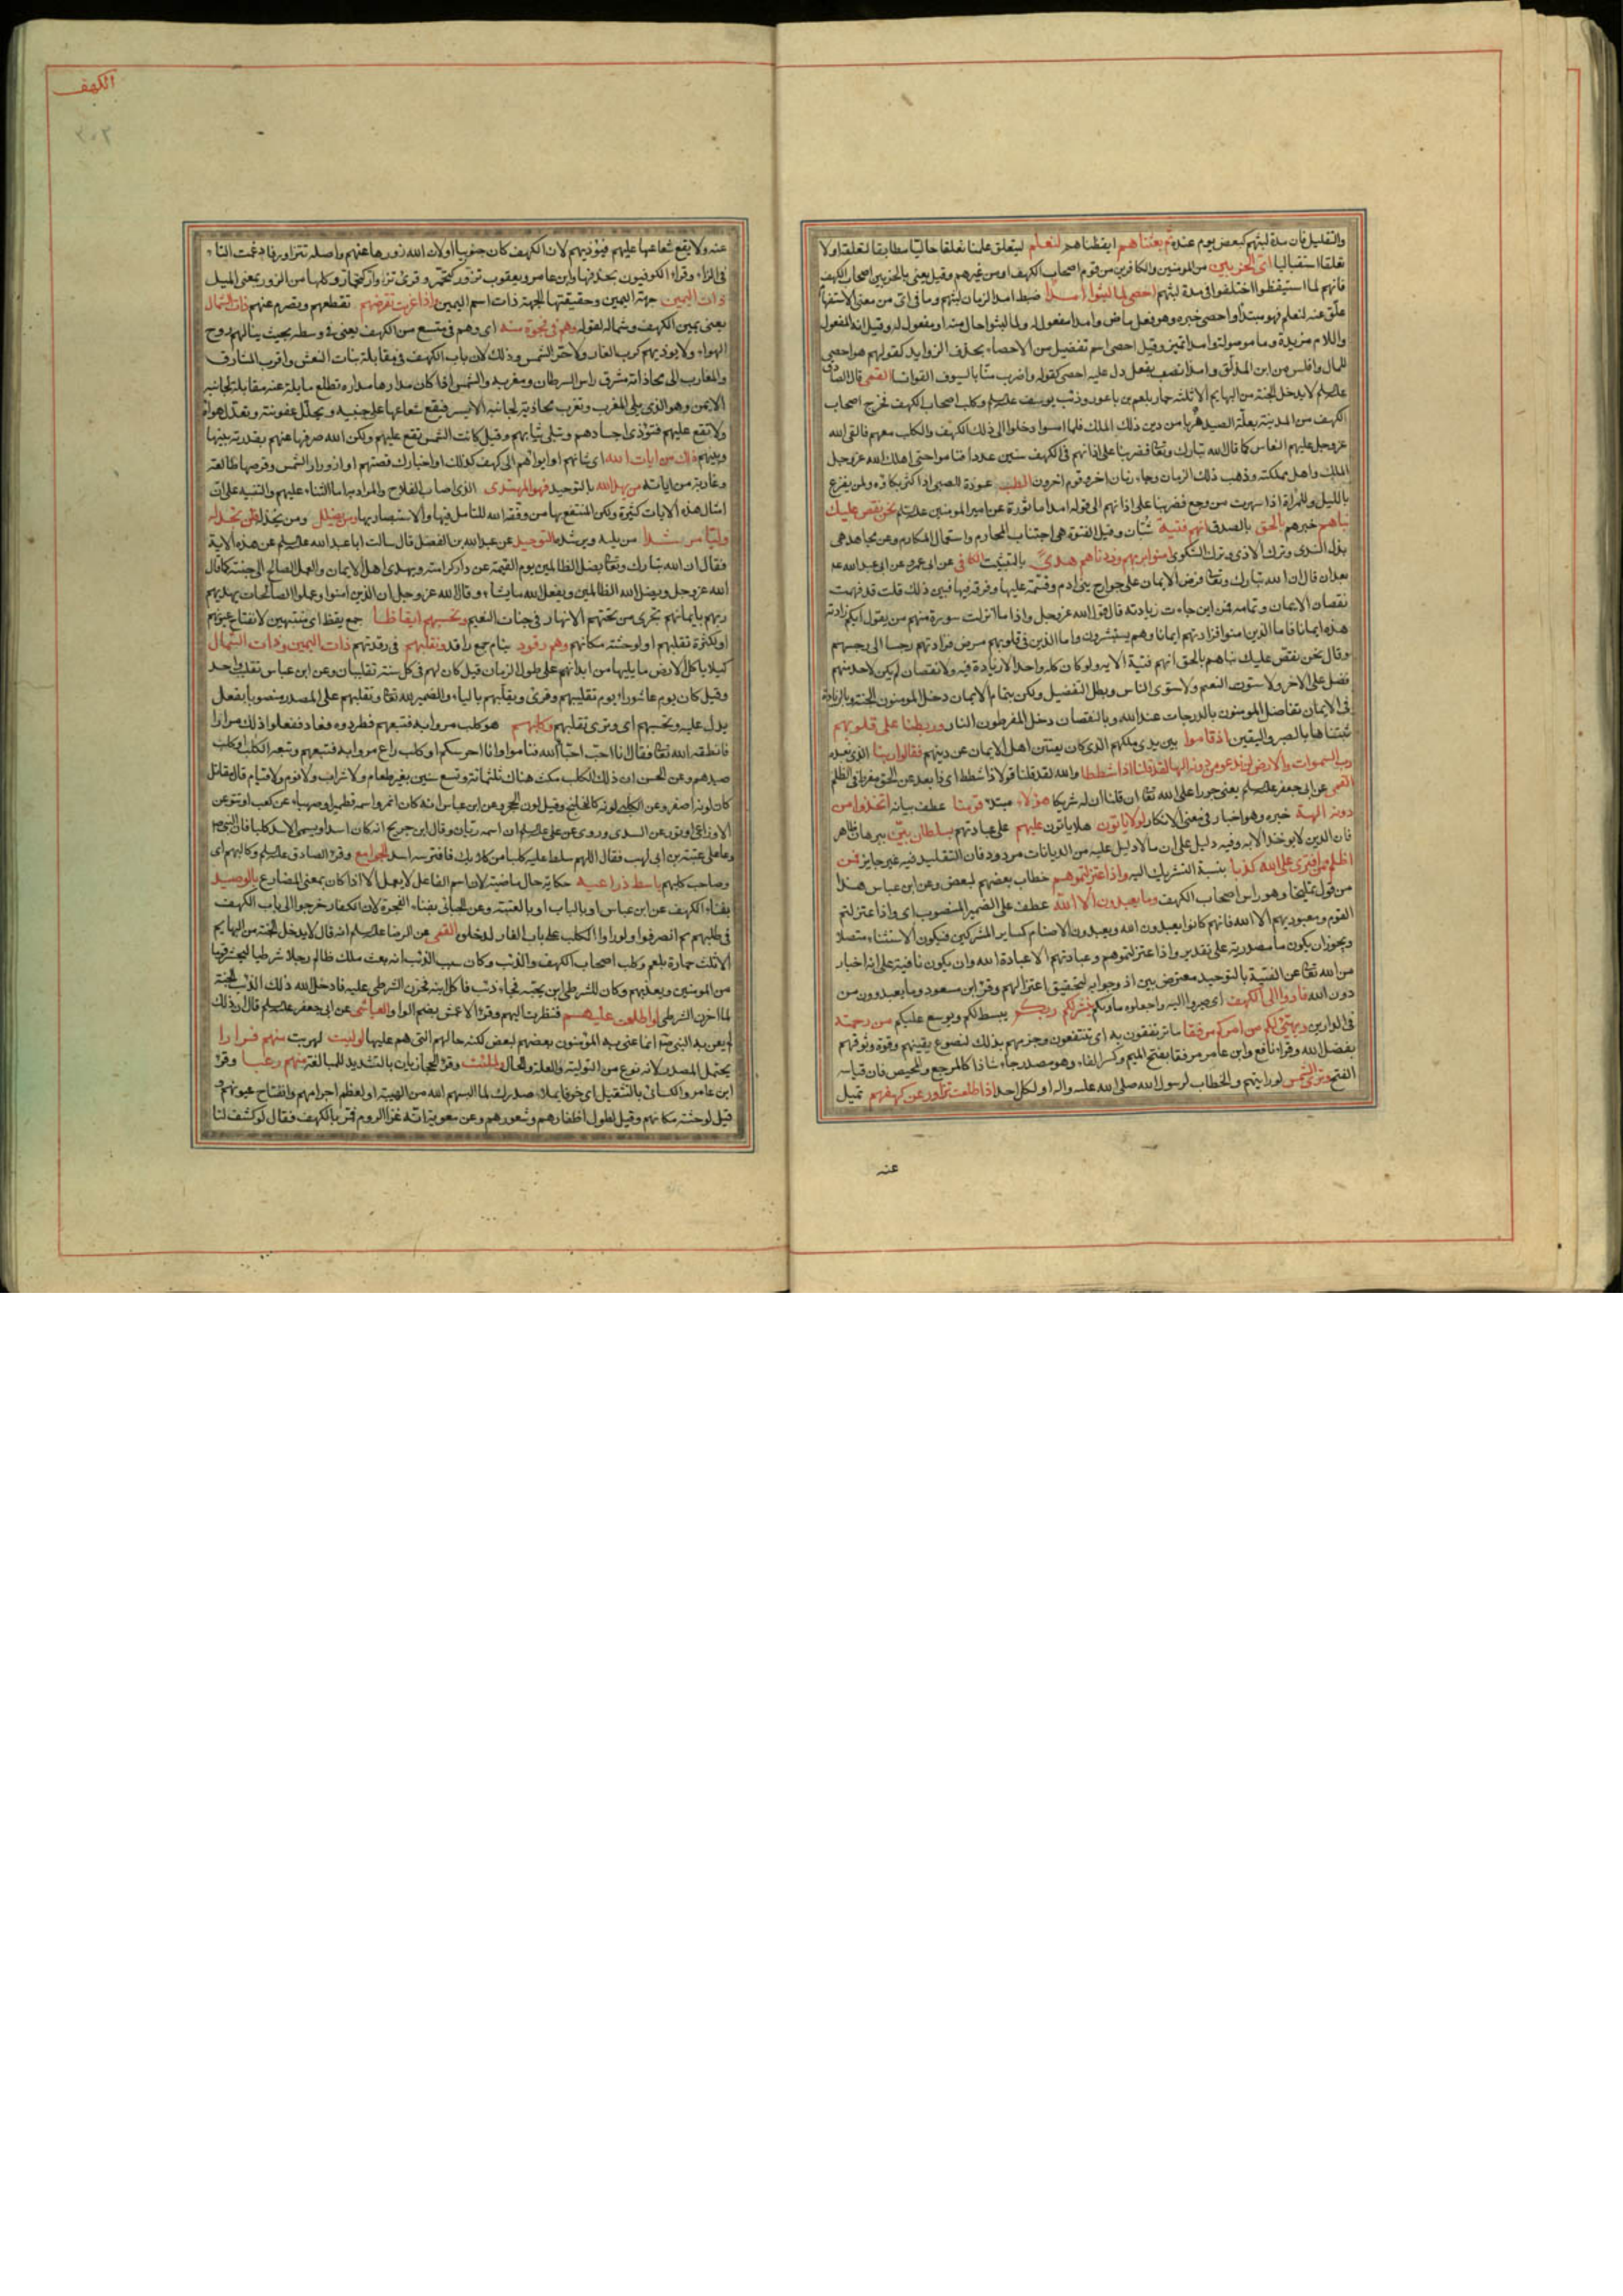 والتقليل فان مدة لبثهم كبعض يوم عنده ثم بعثناهم ايقظناهم لنعلم ليتعلق علمنا تعلقا حاليا مطابقا لتعلقه اولا
تعلقا استقباليا اى الحزبين من المؤمنين والكافرين من قوم اصحاب الكهف او من غيرهم وقيل يعنى بالحزبين اصحاب الكهف
فانهم لما استيقظوا اختلفوا فى مدة لبثهم احصى لما لبثوا امدا ضبط امد الزمان لبثهم وما فى اى من معنى الاستفها
علق عنه لنعلم فهو مبتدأ واحصى خبره وهو فعل ماض وامدا مفعوله ولما لبثوا حال منه او مفعول له وقيل انه المفعول
واللام مزيدة وما موصولة وامدا تميز وقيل احصى اسم تفضيل من الاحصاء بحذف الزوايد كقولهم هو احصى
للمال وافلس من ابن المذلق وامدا نصب بفعل دل عليه احصى كقوله واضرب منا بالسيوف القوانسا القمى قال الصادق
عليه السلم لا يدخل الجنة من البهايم الا ثلثة حمار بلعم بن باعور وذئب يوسف عليه السلم وكلب اصحاب الكهف فخرج اصحاب
الكهف من المدينة بعلة الصيد هربا من دين ذلك الملك فلما امسوا دخلوا الى ذلك الكهف والكلب معهم فالقى الله
عز وجل عليهم النعاس كما قال الله تبارك وتعالى فضربنا على اذانهم فى الكهف سنين عددا فناموا حتى اهلك الله عز وجل
الملك واهل مملكته وذهب ذلك الزمان وجاء زمان اخر وقوم اخرون الطب عوذة للصبى اذا كثر بكاؤه ولمن يفزع
بالليل وللمراة اذا سهرت من وجع فضربنا على اذانهم الى قوله امدا ماثورة عن امير المؤمنين عليه السلم نحن نقص عليك
نباهم خبرهم بالحق بالصدق انهم فتية شبان وقيل الفتوة هى اجتناب المحارم واستعمال المكارم وعن مجاهد هى
بذل الندى وترك الاذى وترك الشكوى امنوا بربهم وزدناهم هدى بالتثبيت الكافى عن ابى عمرو عن ابى عبد الله عليه
بعد ان قال ان الله تبارك وتعالى فرض الايمان على جوارح بنى ادم وقسمه عليها وفرقه فيها فبين ذلك قلت قد فهمت
نقصان الايمان وتمامه فمن اين جاءت زيادته قال قول الله عز وجل واذا ما انزلت سورة منهم من يقول ايكم زادته
هذه ايمانا فاما الذين امنوا فزادتهم ايمانا وهم يستبشرون واما الذين فى قلوبهم مرض فزادتهم رجسا الى رجسهم
وقال نحن نقص عليك نباهم بالحق انهم فتية الايه ولو كان كله واحدا لا زيادة فيه ولا نقصان لم يكن لاحد منهم
فضل على الاخر ولاستوت النعم ولاستوى الناس وبطل التفضيل ولكن بتمام الايمان دخل المومنون الجنة وبالزيادة
فى الايمان تفاضل المومنون بالدرجات عند الله وبالنقصان دخل المفرطون النار وربطنا على قلوبهم
ثبتناها بالصبر واليقين اذ قاموا بين يدى ملكهم الذى كان يفتن اهل الايمان عن دينهم فقالوا ربنا الذى نعبده
رب السموات والارض لن ندعو من دونه الها لقد قلنا اذا شططا والله لقد قلنا قولا ذا شطط اى ذا بعد عن الحق مفرط فى الظلم
القمى عن ابى جعفر عليه السلم يعنى جورا على الله تعالى ان قلنا ان له شريكا هؤلاء مبتدء قومنا عطف بيانه اتخذوا من
دونه الهة خبره وهو اخبار فى معنى الانكار لولا ياتون هلا ياتون عليهم على عبادتهم بسلطان بين ببرهان ظاهر
فان الدين لا يوخذ الا به وفيه دليل على ان ما لا دليل عليه من الديانات مردود فان التقليد فيه غير جايز فمن
اظلم ممن افترى على الله كذبا بنسبة التشريك اليه واذ اعتزلتموهم خطاب بعضهم لبعض وعن ابن عباس هذا
من قول تمليخا وهو راس اصحاب الكهف وما يعبدون الا الله عطف على الضمير المنصوب اى واذ اعتزلتم
القوم ومعبوديهم الا الله فانهم كانوا يعبدون الله ويعبدون الاصنام كساير المشركين فيكون الاستثناء متصلا
ويجوز ان يكون ما مصدرية على تقدير واذ اعتزلتموهم وعبادتهم الا عبادة الله وان يكون نافية على انه اخبار
من الله تعالى عن الفتية بالتوحيد معترض بين اذ وجوابه لتحقيق اعتزالهم وفى ابن مسعود وما يعبدون من
دون الله فاووا الى الكهف اى صيروا اليه واجعلوه ماويكم ينشر لكم ربكم يبسط لكم ويوسع عليكم من رحمته
فى الدارين ويهئ لكم من امركم مرفقا ما ترتفقون به اى تنتفعون وجزمهم بذلك لنصوع يقينهم وقوة وثوقهم
بفضل الله وقرا نافع وابن عامر مرفقا بفتح الميم وكسر الفاء وهو مصدر جاء شاذا كالمرجع والمحيض فان قياسه
الفتح وترى الشمس لو رايتهم والخطاب لرسول الله صلى الله عليه واله او لكل احد اذا طلعت تزاور عن كهفهم تميل
عنه
الكهف
٣٠٣
عنه ولا يقع شعاعها عليهم فيؤذيهم لان الكهف كان جنوبيا او لان الله زورها عنهم واصله تتزاور فادغمت التاء
فى الزاء وقراء الكوفيون بحذفها وابن عامر ويعقوب تزور كتحمر وقرئ تزوار كتحمار وكلها من الزور بمعنى الميل
ذات اليمين جهة اليمين وحقيقتها الجهة ذات اسم اليمين واذا غربت تقرضهم تقطعهم وتصرم عنهم ذات الشمال
يعنى يمين الكهف وشماله لقوله وهم فى فجوة منه اى وهم فى متسع من الكهف يعنى فى وسطه بحيث ينالهم روح
الهواء ولا يوذيهم كرب الغار ولا حر الشمس وذلك لان باب الكهف فى مقابلة بنات النعش واقرب المشارق
والمغارب الى محاذاته مشرق راس السرطان ومغربه والشمس اذا كان مدارها مداره تطلع مايلة عنه مقابلة لجانبه
الايمن وهو الذى يلى المغرب وتغرب محاذية لجانبه الايسر فيقع شعاعها على جنبيه ويحلل عفونته وتعدل هواه
ولا تقع عليهم فتؤذى اجسادهم وتبلى ثيابهم وقيل كانت الشمس تقع عليهم ولكن الله صرفها عنهم بقدرته بينها
وبينهم ذلك من ايات الله اى شانهم او ايواهم الى كهف كذلك او اخبارك قصتهم او ازورار الشمس وقرضها طالعة
وغاربة من اياته من يهد الله بالتوحيد فهو المهتدى الذى اصاب الفلاح والمراد به اما الثناء عليهم والتنبيه على ان
امثال هذه الايات كثيرة ولكن المنتفع بها من وفقه الله للتامل فيها والاستبصار بها ومن يضلل ومن يخذله فلن تجد له
وليا مرشدا من يليه ويرشده التوحيد عن عبد الله بن الفضل قال سالت ابا عبد الله عليه السلم عن هذه الاية
فقال ان الله تبارك وتعالى يضل الظالمين يوم القيمة عن دار كرامته ويهدى اهل الايمان والعمل الصالح الى جنته كما قال
الله عز وجل ويضل الله الظالمين ويفعل الله ما يشاء وقال الله عز وجل ان الذين امنوا وعملوا الصالحات يهديهم
ربهم بايمانهم تجرى من تحتهم الانهار فى جنات النعيم وتحسبهم ايقاظا جمع يقظ اى منتبهين لانفتاح عيونهم
او لكثرة تقلبهم او لوحشة مكانهم وهم رقود نيام جمع راقد ونقلبهم فى رقدتهم ذات اليمين وذات الشمال
كيلا ياكل الارض ما يليها من ابدانهم على طول الزمان قيل كان لهم فى كل سنة تقلبان وعن ابن عباس تقلب واحد
وقيل كان يوم عاشوراء يوم تقليبهم وقرئ ويقلبهم بالياء والضمير لله تعالى وتقلبهم على المصدر منصوبا بفعل
يدل عليه وتحسبهم اى وترى تقلبهم وكلبهم هو كلب مروا به فتبعهم فطردوه فعاد ففعلوا ذلك مرارا
فانطقه الله تعالى فقال انا احب احباء الله فناموا وانا احرسكم او كلب راع مروا به فتبعهم وتبعه الكلب او كلب
صيدهم وعن الحسن ان ذلك الكلب مكث هناك ثلثمائة وتسع سنين بغير طعام ولا شراب ولا نوم ولا قيام قال مقاتل
كان لونه اصفر وعن الكلبى لونه كالخلنج وقيل لون الحجر وعن ابن عباس انه كان انمر واسمه قطمير او صهباء عن كعب او تتو عن
الاوزاعى او تور عن السدى وروى عن على عليه السلم ان اسمه ريان وقال ابن جريح انه كان اسدا ويسمى الاسد كلبا فان النبى ص
دعا على عتبة بن ابى لهب فقال اللهم سلط عليه كلبا من كلابك فافترسه اسد الجوامع وقرء الصادق عليه السلم وكالبهم اى
وصاحب كلبهم باسط ذراعيه حكاية حال ماضية لان اسم الفاعل لا يعمل الا اذا كان بمعنى المضارع بالوصيد
بفناء الكهف عن ابن عباس او بالباب او بالعتبة وعن الجبائى بفناء الفجوة لان الكفار خرجوا الى باب الكهف
فى طلبهم ثم انصرفوا ولو راوا الكلب على باب الغار لدخلوه القمى عن الرضا عليه السلم انه قال لا يدخل الجنة من البهايم
الا ثلث حمارة بلعم وكلب اصحاب الكهف والذئب وكان سبب الذئب انه بعث ملك ظالم رجلا شرطيا ليحشر قوما
من المومنين ويعذبهم وكان للشرطى ابن يحبه فجاء ذئب فاكل ابنه فحزن الشرطى عليه فادخل الله ذلك الذئب الجنة
لما احزن الشرطى لو اطلعت عليهم فنظرت اليهم وقرء الاعمش بضم الواو العياشى عن ابى جعفر عليه السلم قال ان ذلك
لم يعن به النبى ص انما عنى به المؤمنون بعضهم لبعض لكنه حالهم التى هم عليها لوليت لهربت منهم فرارا
يحتمل المصدر لانه نوع من التولية والعلة والحال ولملئت وقرء الحجازيان بالتشديد للمبالغة منهم رعبا وقرء
ابن عامر والكسائى بالتثقيل اى خوفا يملاء صدرك لما البسهم الله من الهيبة او لعظم اجرامهم وانفتاح عيونهم و
قيل لوحشة مكانهم وقيل لطول اظفارهم وشعورهم وعن معوية انه غزا الروم فمر بالكهف فقال لو كشف لنا